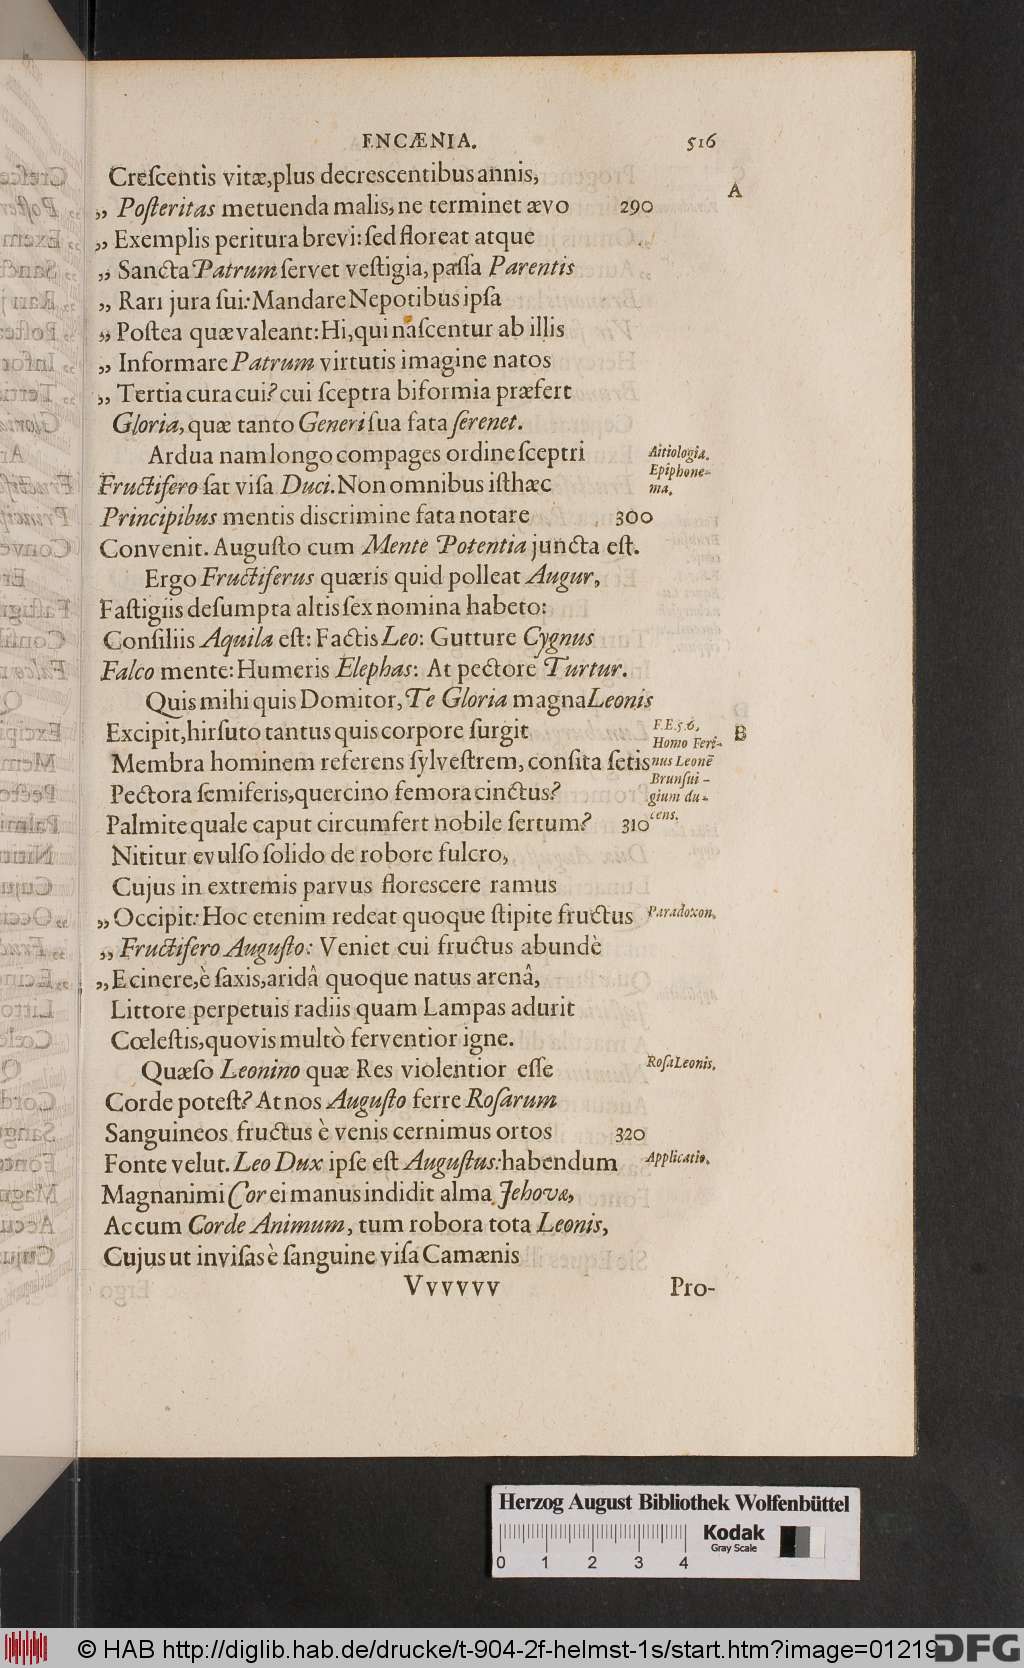 ENCÆNIA. 516
Creſcentis vitæ,plus decreſcentibus annis,
A
„ Poſteritas metuenda malis, ne terminet ævo 290
„ Exemplis peritura brevi: ſed floreat atque
„ Sancta Patrum ſervet veſtigia, paſſa Parentis
„ Rari jura ſui: Mandare Nepotibus ipſa
„ Poſtea quæ valeant: Hi, qui naſcentur ab illis
„ Informare Patrum virtutis imagine natos
„ Tertia cura cui? cui ſceptra biformia præfert
Gloria, quæ tanto Generi ſua fata ſerenet.
Ardua nam longo compages ordine ſceptri
Aitiologia.
Epiphone-
ma.
Fructifero ſat viſa Duci. Non omnibus iſthæc
Principibus mentis diſcrimine fata notare 300
Convenit. Auguſto cum Mente Potentia juncta eſt.
Ergo Fructiferus quæris quid polleat Augur,
Faſtigiis deſumpta altis ſex nomina habeto:
Conſiliis Aquila eſt: Factis Leo: Gutture Cygnus
Falco mente: Humeris Elephas: At pectore Turtur.
Quis mihi quis Domitor, Te Gloria magna Leonis
Excipit, hirſuto tantus quis corpore ſurgit
F.E.5.6.
Homo Feri-
nus Leonē
Brunſui-
gium du-
cens.
B
Membra hominem referens ſylveſtrem, conſita ſetis
Pectora ſemiferis, quercino femora cinctus?
Palmite quale caput circumfert nobile ſertum? 310
Nititur evulſo ſolido de robore fulcro,
Cujus in extremis parvus floreſcere ramus
„ Occipit: Hoc etenim redeat quoque ſtipite fructus
Paradoxon.
„ Fructifero Auguſto: Veniet cui fructus abundè
„ E cinere, è ſaxis, aridâ quoque natus arenâ,
Littore perpetuis radiis quam Lampas adurit
Cœleſtis, quovis multò ferventior igne.
Quæſo Leonino quæ Res violentior eſſe
Roſa Leonis.
Corde poteſt? At nos Auguſto ferre Roſarum
Sanguineos fructus è venis cernimus ortos 320
Fonte velut. Leo Dux ipſe eſt Auguſtus: habendum
Applicatio.
Magnanimi Cor ei manus indidit alma Jehovæ,
Ac cum Corde Animum, tum robora tota Leonis,
Cujus ut inviſas è ſanguine viſa Camænis
Vvvvvv Pro-
Herzog August Bibliothek Wolfenbüttel
Kodak
Gray Scale
0 1 2 3 4
© HAB http://diglib.hab.de/drucke/t-904-2f-helmst-1s/start.htm?image=01219
DFG